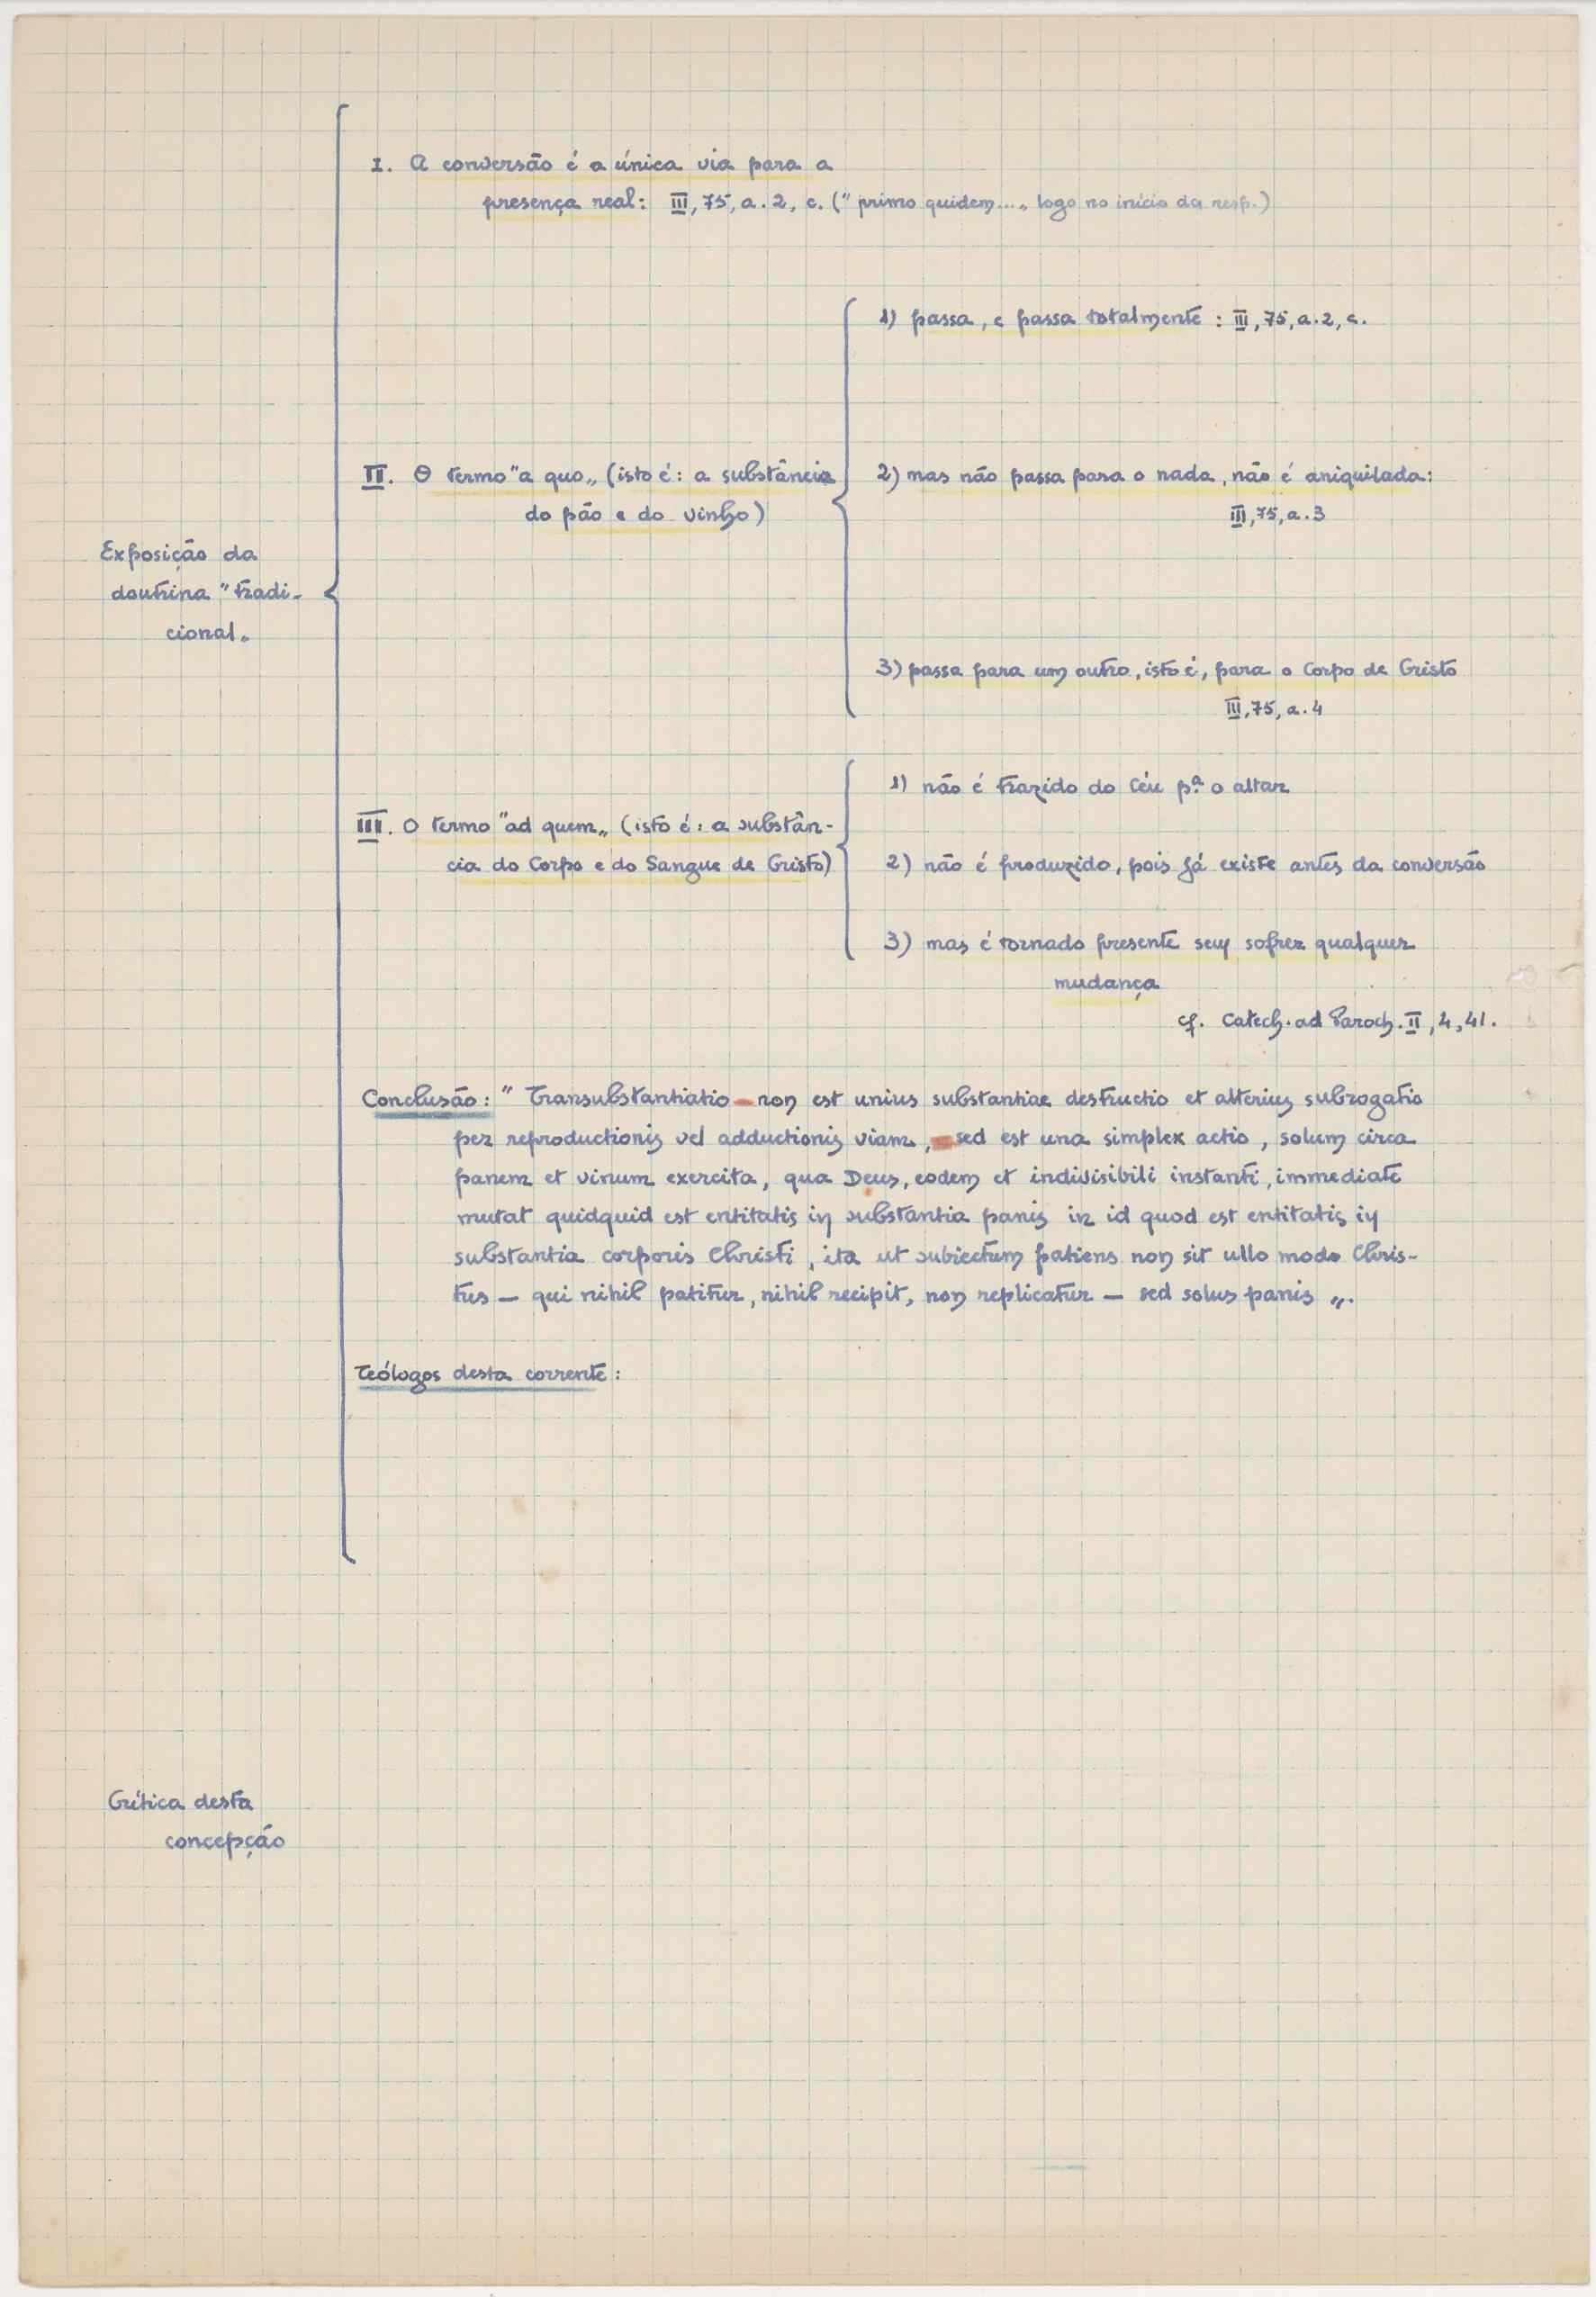 I. A conversão é a única via para a
presença real: III, 75, a. 2, c. ("primo quidem..." logo no início da resp.)
1) passa, e passa totalmente: III, 75, a. 2, c.
II. O termo "a quo" (isto é: a substância
do pão e do vinho)
2) mas não passa para o nada, não é aniquilada:
III, 75, a. 3
Exposição da
doutrina "tradi-
cional"
3) passa para um outro, isto é, para o Corpo de Cristo
III, 75, a. 4
III. O termo "ad quem" (isto é: a substân-
cia do Corpo e do Sangue de Cristo)
1) não é trazido do Céu pª o altar
2) não é produzido, pois já existe antes da conversão
3) mas é tornado presente sem sofrer qualquer
mudança
cf. Catech. ad Paroch. II, 4, 41.
Conclusão: "Transubstantiatio — non est unius substantiae destructio et alterius subrogatio
per reproductionis vel adductionis viam, — sed est una simplex actio, solum circa
panem et vinum exercita, qua Deus, eodem et indivisibili instanti, immediate
mutat quidquid est entitatis in substantia panis in id quod est entitatis in
substantia corporis Christi, ita ut subiectum patiens non sit ullo modo Chris-
tus — qui nihil patitur, nihil recipit, non replicatur — sed solus panis".
Teólogos desta corrente:
Crítica desta
concepção